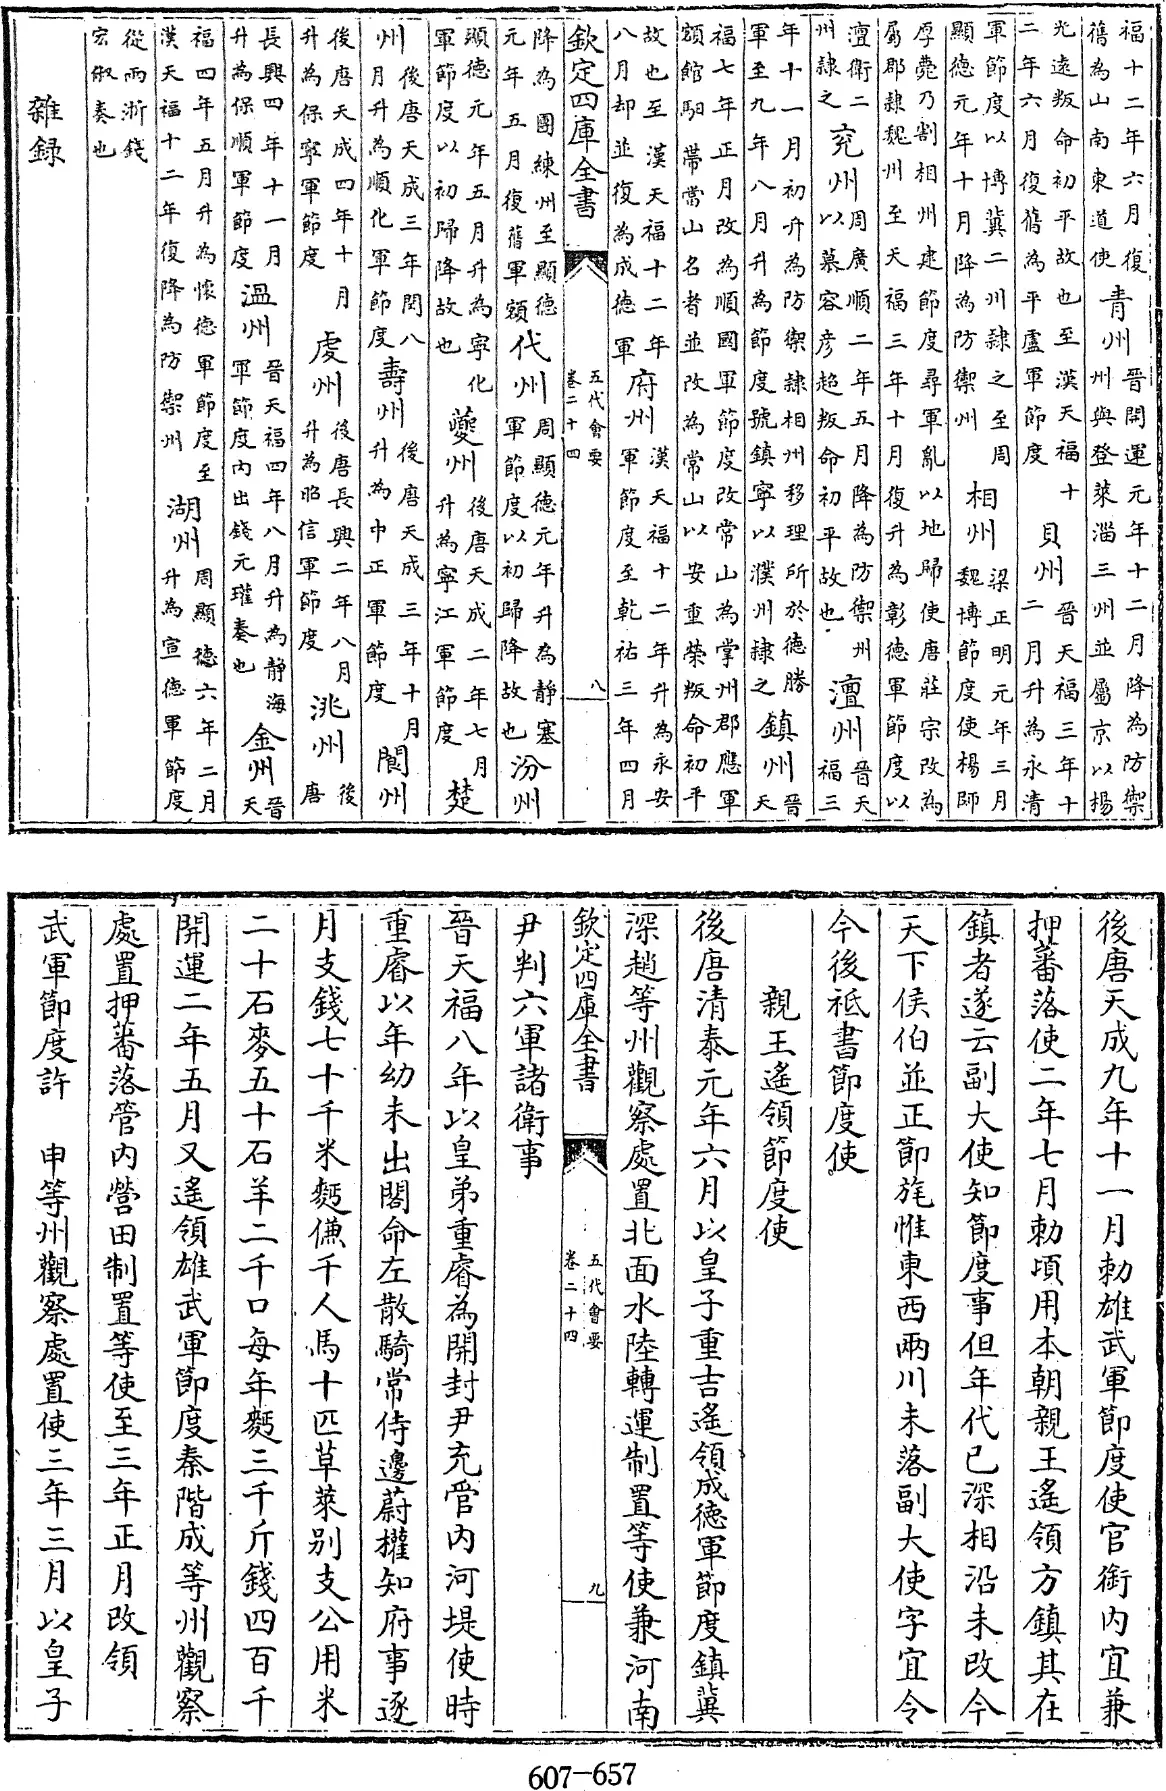 福十二年六月復舊為山南東道使青州晉開運元年十二月降為防禦州與登萊淄三州並屬京以楊
光遠叛命初平故也至漢天福十二年六月復舊為平盧軍節度貝州晉天福三年十二月升為永清
軍節度以博冀二州隸之至周顯德元年十月降為防禦州相州梁正明元年三月魏博節度使楊師
厚薨乃割相州建節度尋軍亂以地歸使唐莊宗改為屬郡隸魏州至天福三年十月復升為彰德軍節度以
澶衛二州隸之兖州周廣順二年五月降為防禦州以慕容彦超叛命初平故也澶州晉天福三
年十一月初升為防禦隸相州移理所於德勝軍至九年八月升為節度號鎮寧以濮州隸之鎮州晉天
福七年正月改為順國軍節度改常山為掌州郡應軍額館馹帶常山名者並改為常山以安重榮叛命初平
故也至漢天福十二年八月却並復為成德軍府州漢天福十二年升為永安軍節度至乾祐三年四月
欽定四庫全書 五代會要 卷二十四 八
降為團練州至顯德元年五月復舊軍額代州周顯德元年升為靜塞軍節度以初歸降故也汾州
顯德元年五月升為寧化軍節度以初歸降故也夔州後唐天成二年七月升為寧江軍節度楚
州後唐天成三年閏八月升為順化軍節度壽州後唐天成三年十月升為中正軍節度閬州
後唐天成四年十月升為保寧軍節度處州後唐長興二年八月升為昭信軍節度洮州後唐
長興四年十一月升為保順軍節度溫州晉天福四年八月升為静海軍節度内出錢元瓘奏也金州晉天
福四年五月升為懷德軍節度至漢天福十二年復降為防禦州湖州周顯德六年二月升為宣德軍節度
從兩浙錢宏俶奏也
雜録
後唐天成九年十一月勅雄武軍節度使官銜内宜兼
押蕃落使二年七月勅頃用本朝親王遙領方鎮其在
鎮者遂云副大使知節度事但年代已深相沿未改今
天下侯伯並正節旄惟東西兩川未落副大使字宜令
今後祇書節度使
親王遙領節度使
後唐清泰元年六月以皇子重吉遙領成德軍節度鎮冀
深趙等州觀察處置北面水陸轉運制置等使兼河南
欽定四庫全書 五代會要 卷二十四 九
尹判六軍諸衛事
晉天福八年以皇弟重睿為開封尹充管内河堤使時
重睿以年幼未出閤命左散騎常侍邊蔚權知府事逐
月支錢七十千米麪傔千人馬十匹草萊别支公用米
二十石麥五十石羊二千口每年麪三千斤錢四百千
開運二年五月又遙領雄武軍節度秦階成等州觀察
處置押蕃落管内營田制置等使至三年正月改領
武軍節度許 申等州觀察處置使三年三月以皇子
607-657